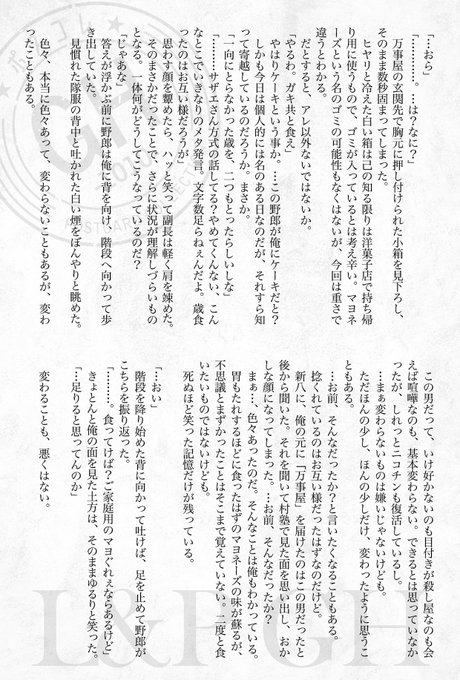 「…おら」
「………。…は？なに？」
　万事屋の玄関先で胸元に押し付けられた小箱を見下ろし、
そのまま数秒固まってしまった。
　ヒヤリと冷えた白い箱は己の知る限りは洋菓子店で持ち帰
り用に使うもので、ゴミが入っているとは考え辛い。マヨネ
ーズという名のゴミの可能性もなくはないが、今回は重さで
違うとわかる。
　だとすると、アレ以外ないではないか。
「やるわ。ガキ共と食え」
　やはりケーキという事か。…この野郎が俺にケーキだと？
しかも今日は個人的には名のある日なのだが、それすら知
って寄越しているのだろうか。まさか。
「一向にとらなかった歳を、二つもとったらしいしな」
「………サザエさん方式の話してる？やめてくんない、こん
なとこでいきなりのメタ発言。文字数足らねぇんだよ。歳食
ったのはお互い様だろうが」
　思わず顔を顰めたら、ハッと笑って副長は軽く肩を竦めた。
　そのまさかだったことで、さらに状況が理解しづらいもの
となる。一体何がどうしてこうなっているのだ？
「じゃあな」
　答えが浮かぶ前に野郎は俺に背を向け、階段へ向かって歩
き出していた。
　見慣れた隊服の背中と吐かれた白い煙をぼんやりと眺めた。
　色々、本当に色々あって、変わらないこともあるが、変わ
ったこともある。
　この男だって、いけ好かないのも目付きが殺し屋なのも会
えば喧嘩なのも、基本変わらない。できるとは思っていなか
ったが、しれっとニコチンも復活しているし。
　…まぁ変わらないものは嫌いじゃないけども。
　ただほんの少し、ほんの少しだけ、変わったように思うこ
ともある。
　…お前、そんなだったか？と言いたくなることもある。
　捻くれているのはお互い様だったはずなのだけど。
　新八に、俺の元に「万事屋」を届けたのはこの男だったと
後から聞いた。それを聞いて村塾で見た面を思い出し、おか
しな顔になってしまった。…お前、そんなだったか？
　まぁ…、色々あったのだ。そんなことは俺もわかっている。
　胃もたれするほどに食ったはずのマヨネーズの味が蘇るが、
不思議とまずかったことはそこまで覚えていない。二度と食
いたいものではないけども。
　死ぬほど笑った記憶だけが残っている。
「…おい」
　階段を降り始めた背に向かって吐けば、足を止めて野郎が
こちらを振り返った。
「………。食ってけば？ご家庭用のマヨぐれぇならあるけど」
　きょとんと俺の面を見た土方は、そのままゆるりと笑った。
「…足りると思ってんのか」
　変わることも、悪くはない。
L&P GH